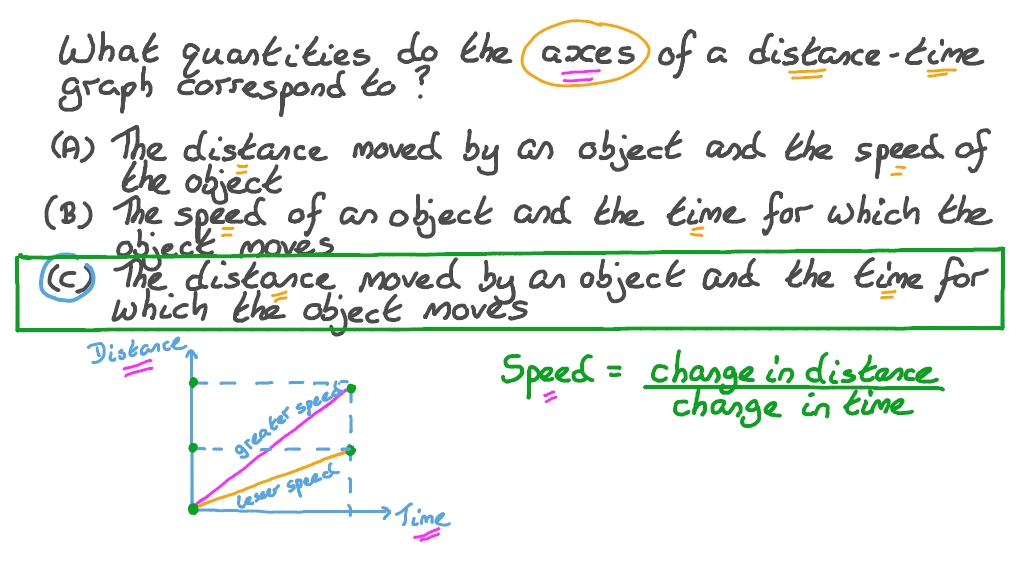 What quantities do the axes of a distance-time
graph correspond to?
(A) The distance moved by an object and the speed of
the object
(B) The speed of an object and the time for which the
object moves
(C) The distance moved by an object and the time for
which the object moves
Distance
greater speed
lesser speed
Time
Speed = change in distance
change in time